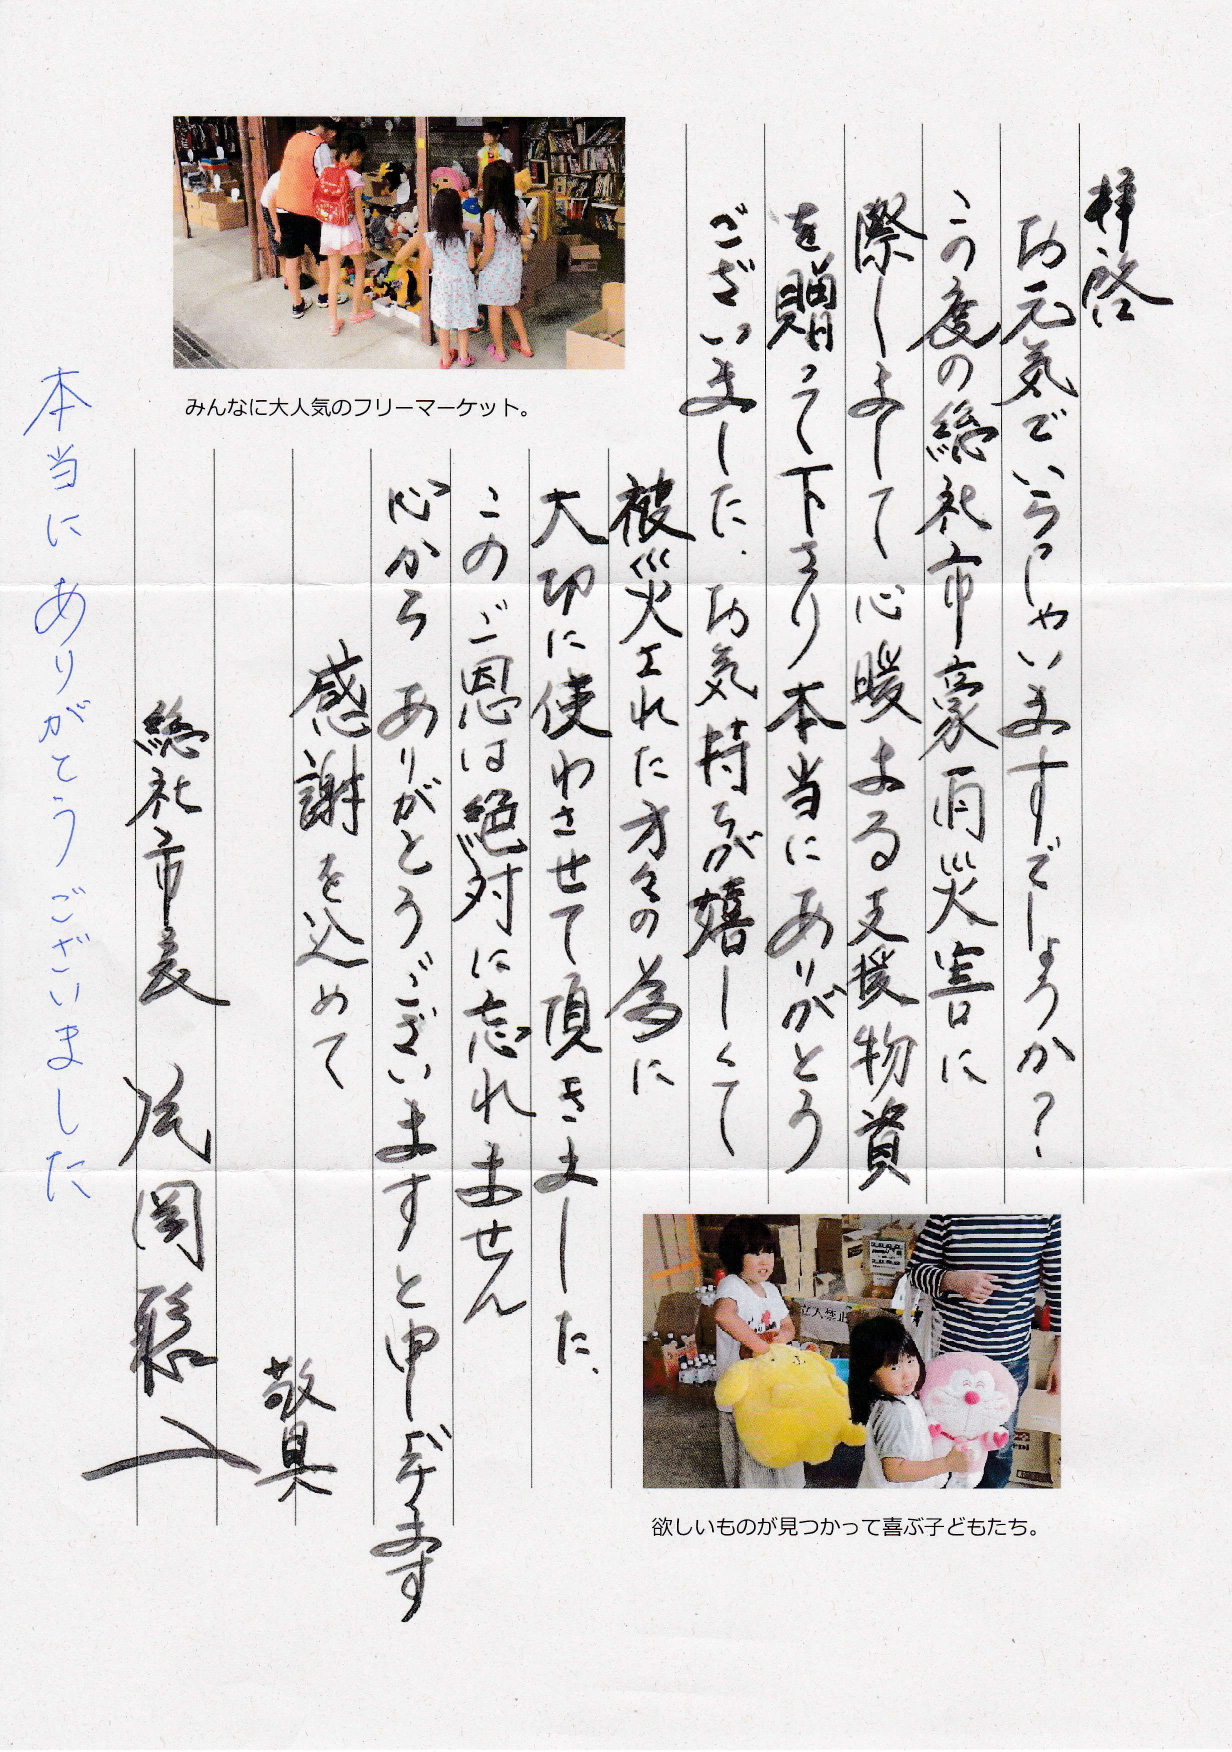 拝啓
お元気でいらっしゃいますでしょうか?
この度の総社市豪雨災害に
際しまして心暖まる支援物資
を贈って下さり本当にありがとう
ございました、お気持ちが嬉しくて
被災された方々の為に
大切に使わさせて頂きました、
このご恩は絶対に忘れません
心からありがとうございますと申し上げます
感謝を込めて
敬具
総社市長 片岡聡一
本当にありがとうございました
みんなに大人気のフリーマーケット。
立入禁止
欲しいものが見つかって喜ぶ子どもたち。